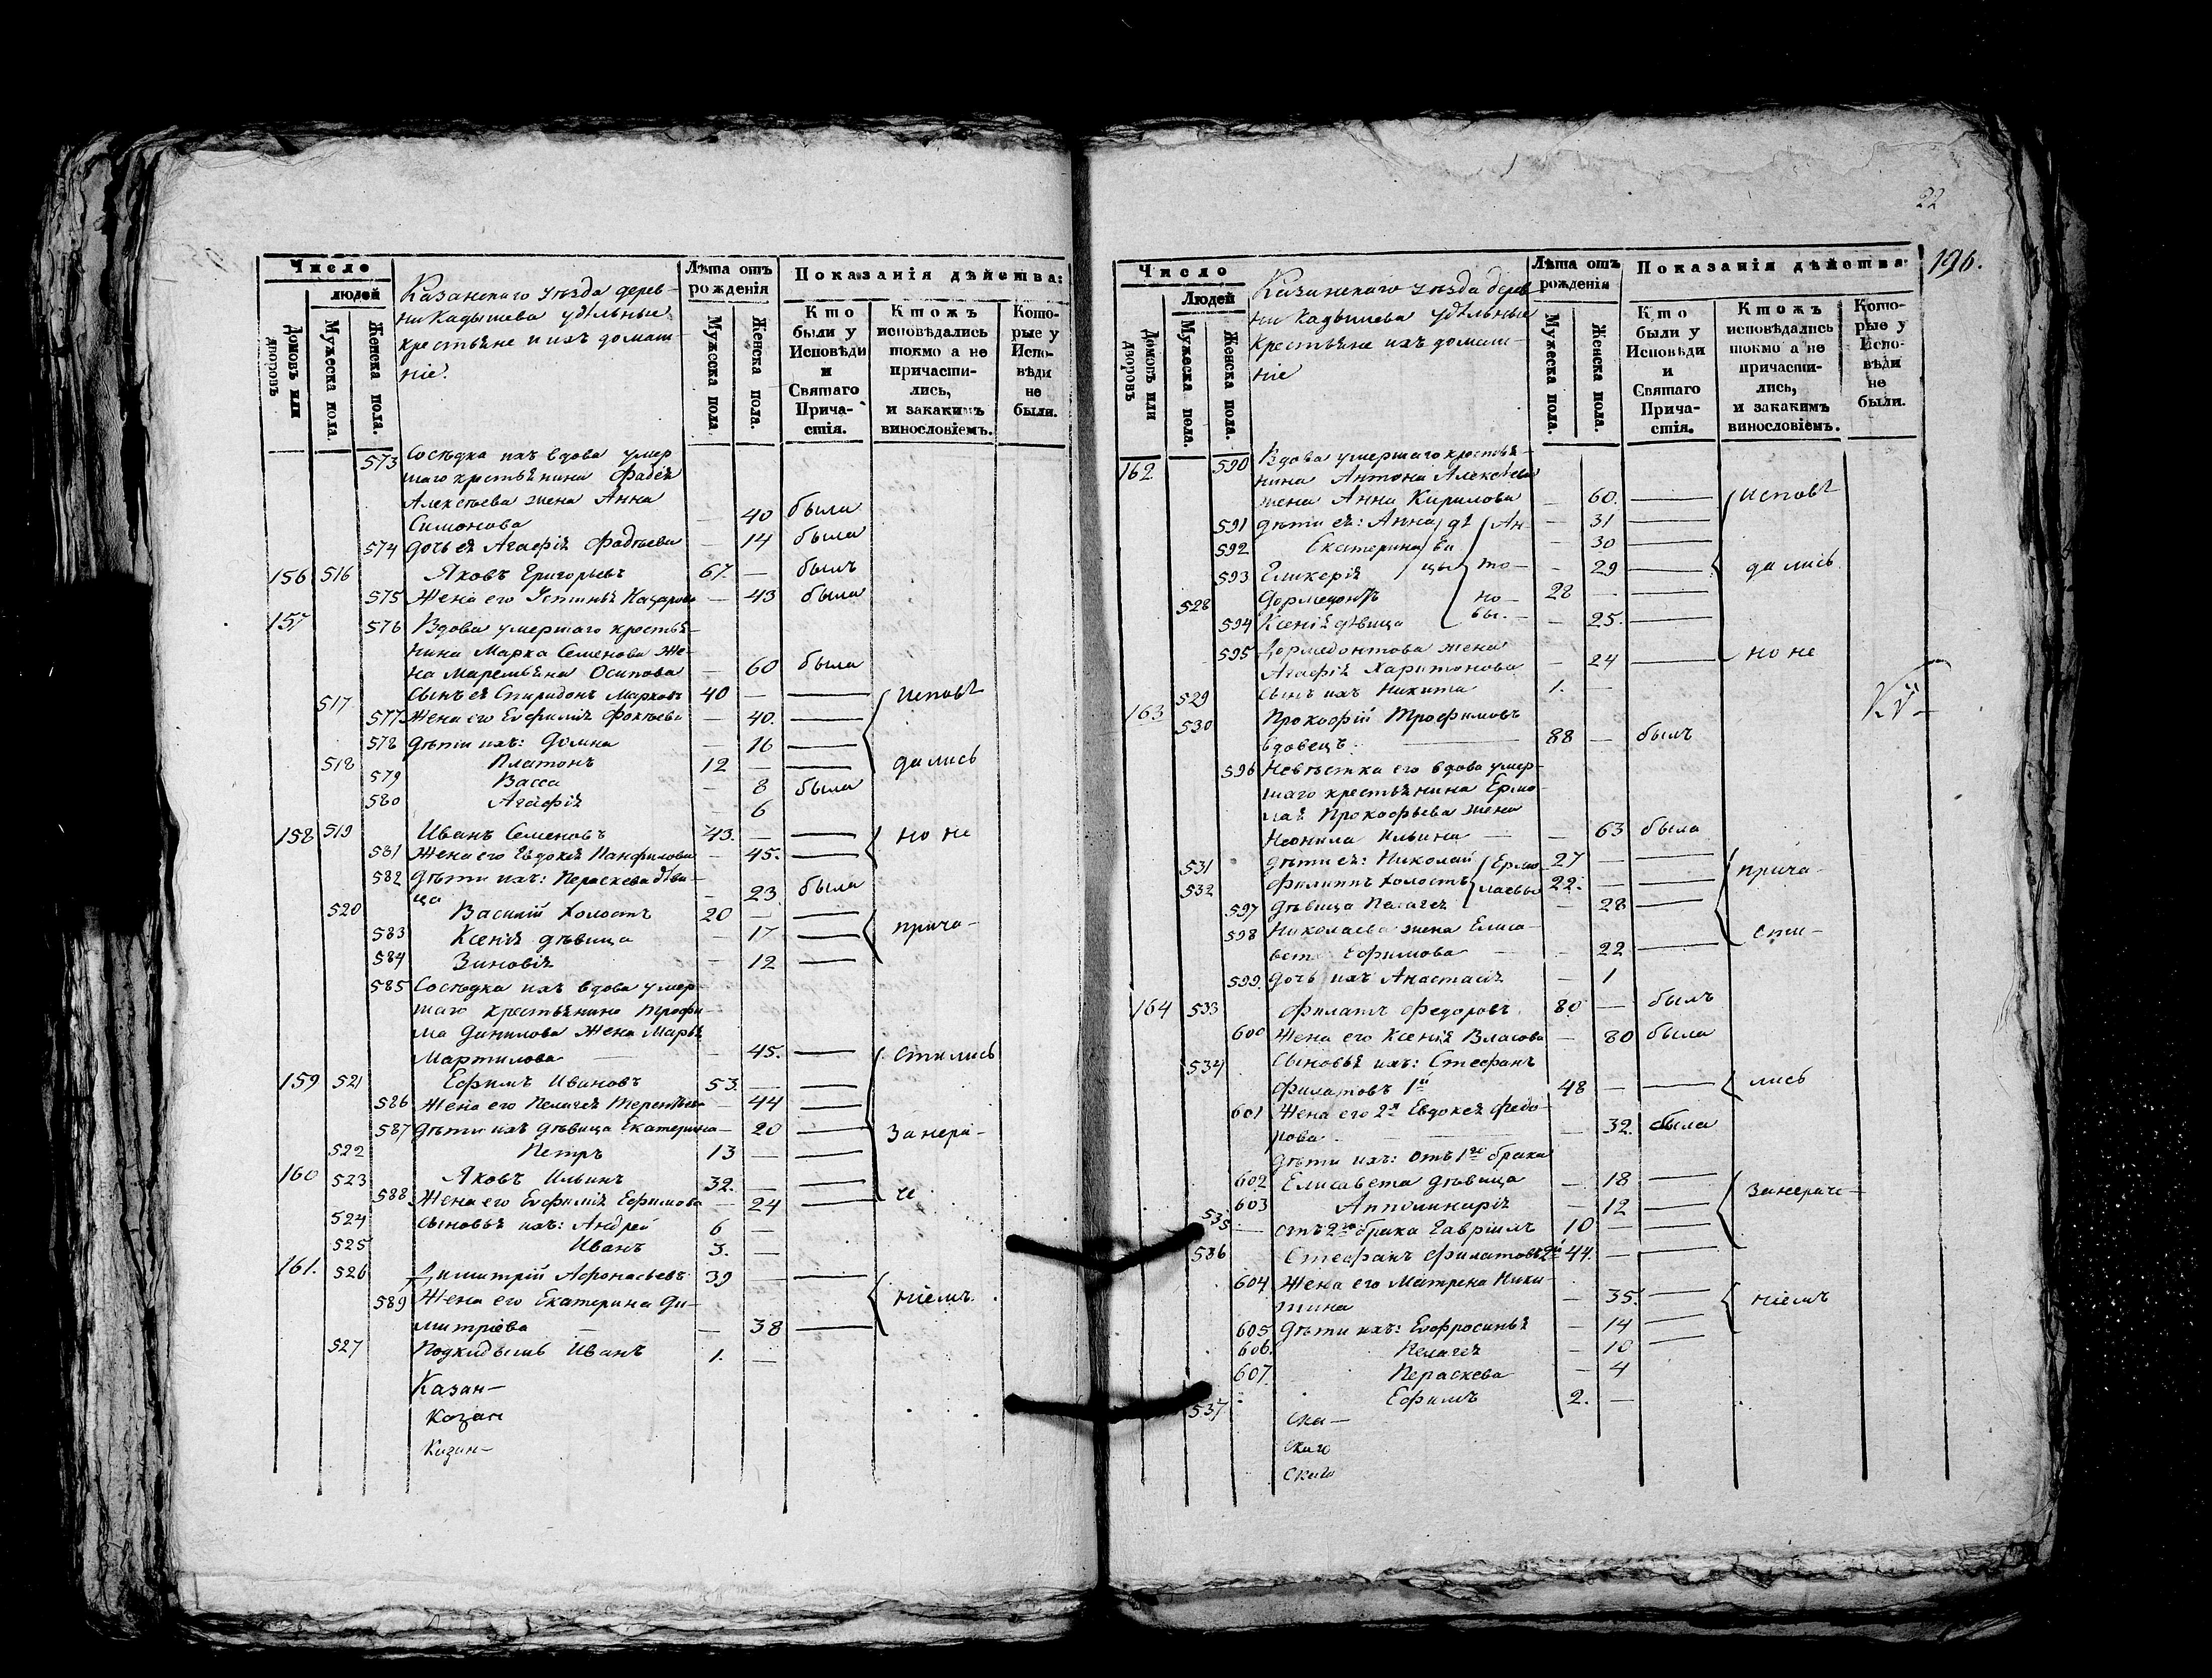 Число
людей
Домовъ или дворовъ
Мужеска пола.
Женска пола.
Казанскаго уѣзда дерев-
ни Кадышева удѣльные
крестьяне и ихъ домаш-
ніе.
Лѣта отъ рожденія
Мужеска пола.
Женска пола.
Показанія дѣйства:
Кто были у Исповѣди и Святаго Прича-стія.
Ктожъ исповѣдались токмо а не причасти-лись, и закакимъ винословіемъ.
Кото-рые у Испо-вѣди не были.
573 Сосѣдка ихъ вдова умер
шаго крестьянина Фадея
Алексѣева жена Анна
Симонова — 40 была
574 дочь ея Агафія Фадѣева — 14 была
156 516 Яковъ Григорьевъ 67. — былъ
575 Жена его Устинья Назарова — 43 была
157 576 Вдова умершаго крестья-
нина Марка Семенова же-
на Маремьяна Осипова — 60 была
517 Сынъ ея Спиридонъ Марковъ 40 — — Исповѣ
577 Жена его Евфимія Фокѣева — 40. —
578 дѣти ихъ: Домна — 16 —
518 Платонъ 12 — — дались
579 Васса — 8 была
580 Агафія — 6
158 519 Иванъ Семеновъ 43. — — но не
581 Жена его Евдокея Панфилова — 45. —
582 Дѣти ихъ: Параскева дѣви-
ца — 23 была
520 Василій холостъ 20 — —
583 Ксенія дѣвица — 17 — прича-
584 Зиновія — 12 —
585 Сосѣдка ихъ вдова умер-
шаго крестьянина Трофи
ма Данилова жена Марья
Мартилова — 45. — стились
159 521 Ефимъ Ивановъ 53. — —
586 Жена его Пелагея Терентьева — 44 —
587 дѣти ихъ дѣвица Екатерина — 20 — Занера-
522 Петръ 13 — —
160 523 Яковъ Ильинъ 32. — —
588 Жена его Евфимія Ефимова — 24 — че
524 Сыновья ихъ: Андрей 6 —
525 Иванъ 3. —
161. 526 Димитрій Афонасьевъ 39 — —
589 Жена его Екатерина Ди-
митріева — 38 — ніемъ.
527 Подкидышъ Иванъ 1. —
Казан-
Казан
Казан-
22
196.
Число
Людей
Домовъ или дворовъ
Мужеска пола.
Женска пола.
Казанскаго уѣзда дерев
ни Кадышева удѣльные
крестьяне ихъ домаш-
ніе
Лѣта отъ рожденія
Мужеска пола.
Женска пола.
Показанія дѣйства
Кто были у Исповѣди и Святаго Прича-стія.
Ктожъ исповѣдались токмо а не причасти-лись, и закакимъ винословіемъ.
Кото-рые у Испо-вѣди не были.
162 590 Вдова умершаго крестья-
нина Антона Алексѣева
жена Анна Кирилова — 60. — Исповѣ
591 дѣти ея: Анна дѣ Ан- — 31 —
592 Екатерина ви — 30 —
593 Гликерія цы то- — 29 — дались
528 Дормедонтъ но- 28 — —
594 Ксенія дѣвица вы. — 25. —
595 Дормедонтова жена
Агафія Харитонова — 24 — но не
529 Сынъ ихъ Никита 1. —
163 530 Прокофій Трофимовъ
вдовецъ. 88 — былъ
596 Невѣстка его вдова умер-
шаго крестьянина Ермо-
лая Прокофьева жена
Неонила Ильина — 63 была
531 дѣти ея: Николай Ермо 27 — — прича-
532 Филиппъ холостъ лаевы 22. — —
597 дѣвица Пелагея — 28 —
598 Николаева жена Елиса-
вета Ефимова — 22 — сти-
599. дочь ихъ Анастасія — 1
164 533 Филатъ Федоровъ 80 — былъ
600 Жена его Ксенія Власова — 80 была
534 Сыновья ихъ: Стефанъ
Филатовъ 1й 48 — — лись
601 Жена его 2я Евдокея Федо-
рова — 32. была
дѣти ихъ: отъ 1го брака
602 Елисавета дѣвица — 18 — Занераче-
603 Апполинарія — 12 —
535 отъ 2го брака Гавріилъ 10 — —
536 Стефанъ Филатовъ 2й 44. — —
604 Жена его Матрена Ники
тина — 35. — ніемъ
605 Дѣти ихъ: Евфросинья — 14 —
606. Пелагея — 10 —
607. Параскева — 4
537 Ефимъ 2. —
ска-
скаго
скаго